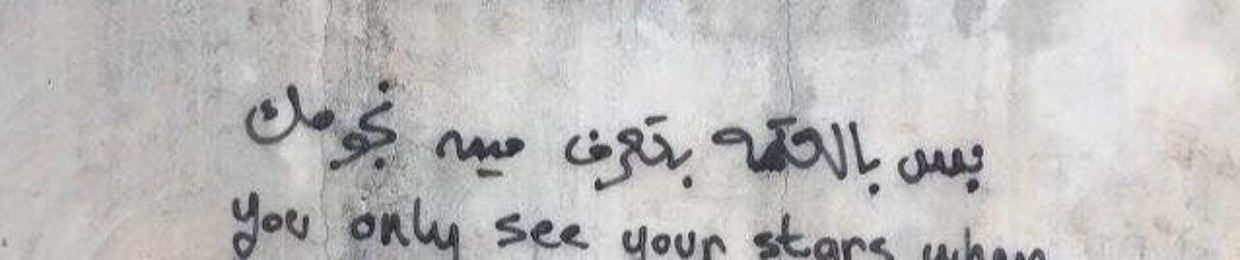 بس بالعتمه بتعرف مين نجومك
you only see your stars when